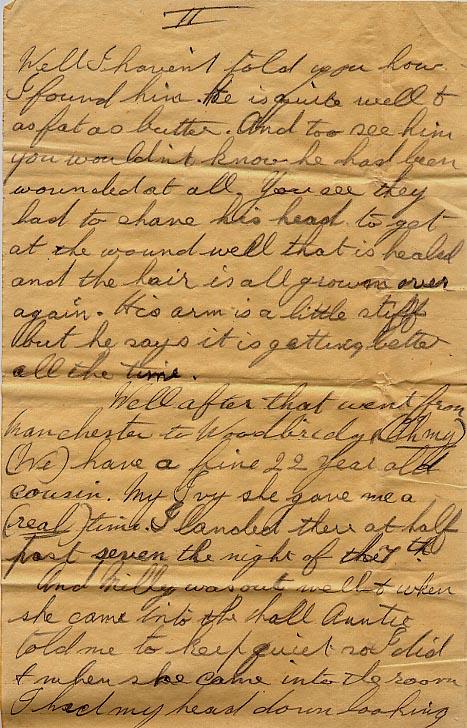 II
Well I haven't told you how
I found him. He is quite well &
as fat as butter. And too see him
you wouldn't know he had been
wounded at all. You see they
had to shave his head to get
at the wound well that is healed
and the hair is all grown over
again. His arm is a little stiff
but he says it is getting better
all the time.
Well after that went from
Manchester to Woodbridge (Oh my)
(We) have a fine 22 year old
cousin. My Ivy she gave me a
(real) time. I landed there at half
past seven the night of the 7th.
And Milly was out well & when
she came into the hall Auntie
told me to keep quiet so I did
& when she came into the room
I had my head down looking